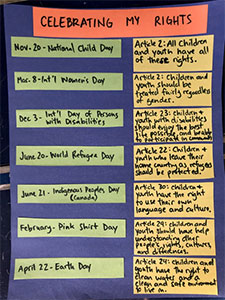 CELEBRATING MY RIGHTS
Nov. 20 - National Child Day
Article 2: All Children
and youth have all
of these rights.
Mar. 8 - Int'l Women's Day
Article 2: Children and
youth should be
treated fairly regardless
of gender.
Dec 3 - Int'l Day of Persons
with Disabilities
Article 23: children +
youth with disabilities
should enjoy the best
life possible, and
to participate in community
June 20 - World Refugee Day
Article 22: Children +
youth who leave their
home country as refugees
should be protected.
June 21 - Indigenous Peoples Day
(Canada)
Article 30: children +
youth have the right
to use their own
language and culture.
February - Pink Shirt Day
Article 29: children and
youth should have help
understanding other
people's rights, cultures,
and differences.
April 22 - Earth Day
Article 24: children and
youth have the right to
clean water and a
clean and safe environment
to live in.